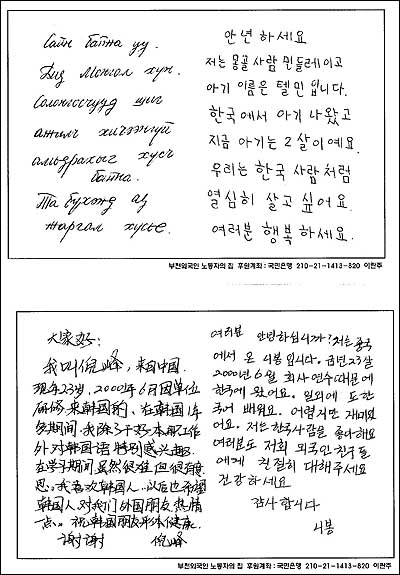 Сайн байна уу.
Бид Монгол хүн.
Солонгосчууд шиг
ажилч хичээнгүй
амьдрахыг хүсч
байна.
Та бүхэнд аз
жаргал хүсье.
안녕하세요
저는 몽골 사람 민들레이고
아기 이름은 텔민 입니다.
한국에서 아기 나왔고
지금 아기는 2살이예요.
우리는 한국 사람처럼
열심히 살고 싶어요.
여러분 행복하세요.
부천외국인 노동자의 집 후원계좌 : 국민은행 210-21-1413-820 이란주
大家好：
我叫倪峰，来自中国.
现年23岁，2000年6月因单位
研修来韩国的，在韩国
期间，我除了干好本职工作
外对韩国语特别感兴趣.
在学习期间虽然很难但很有意
思。我喜欢韩国人。以后也希望
韩国人对我们外国朋友热情
一点。祝韩国朋友身体健康.
谢谢 倪峰
여러분 안녕하십니까? 저는 중국
에서 온 니봉입니다. 금년 23살
2000년 6월 회사 연수때문에
한국에 왔어요. 일외에도 한
국어 배워요. 어렵지만 재미있
어요. 저는 한국사람을 좋아해요
여러분도 저희 외국인 친구들
에게 친절히 대해주세요
건강하세요
감사합니다
니봉
부천외국인 노동자의 집 후원계좌 : 국민은행 210-21-1413-820 이란주